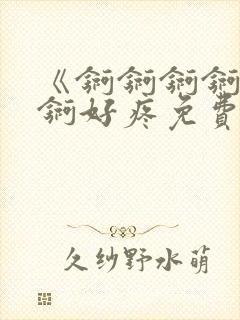 《锕锕锕锕
锕好疼免費
久纱野水萌